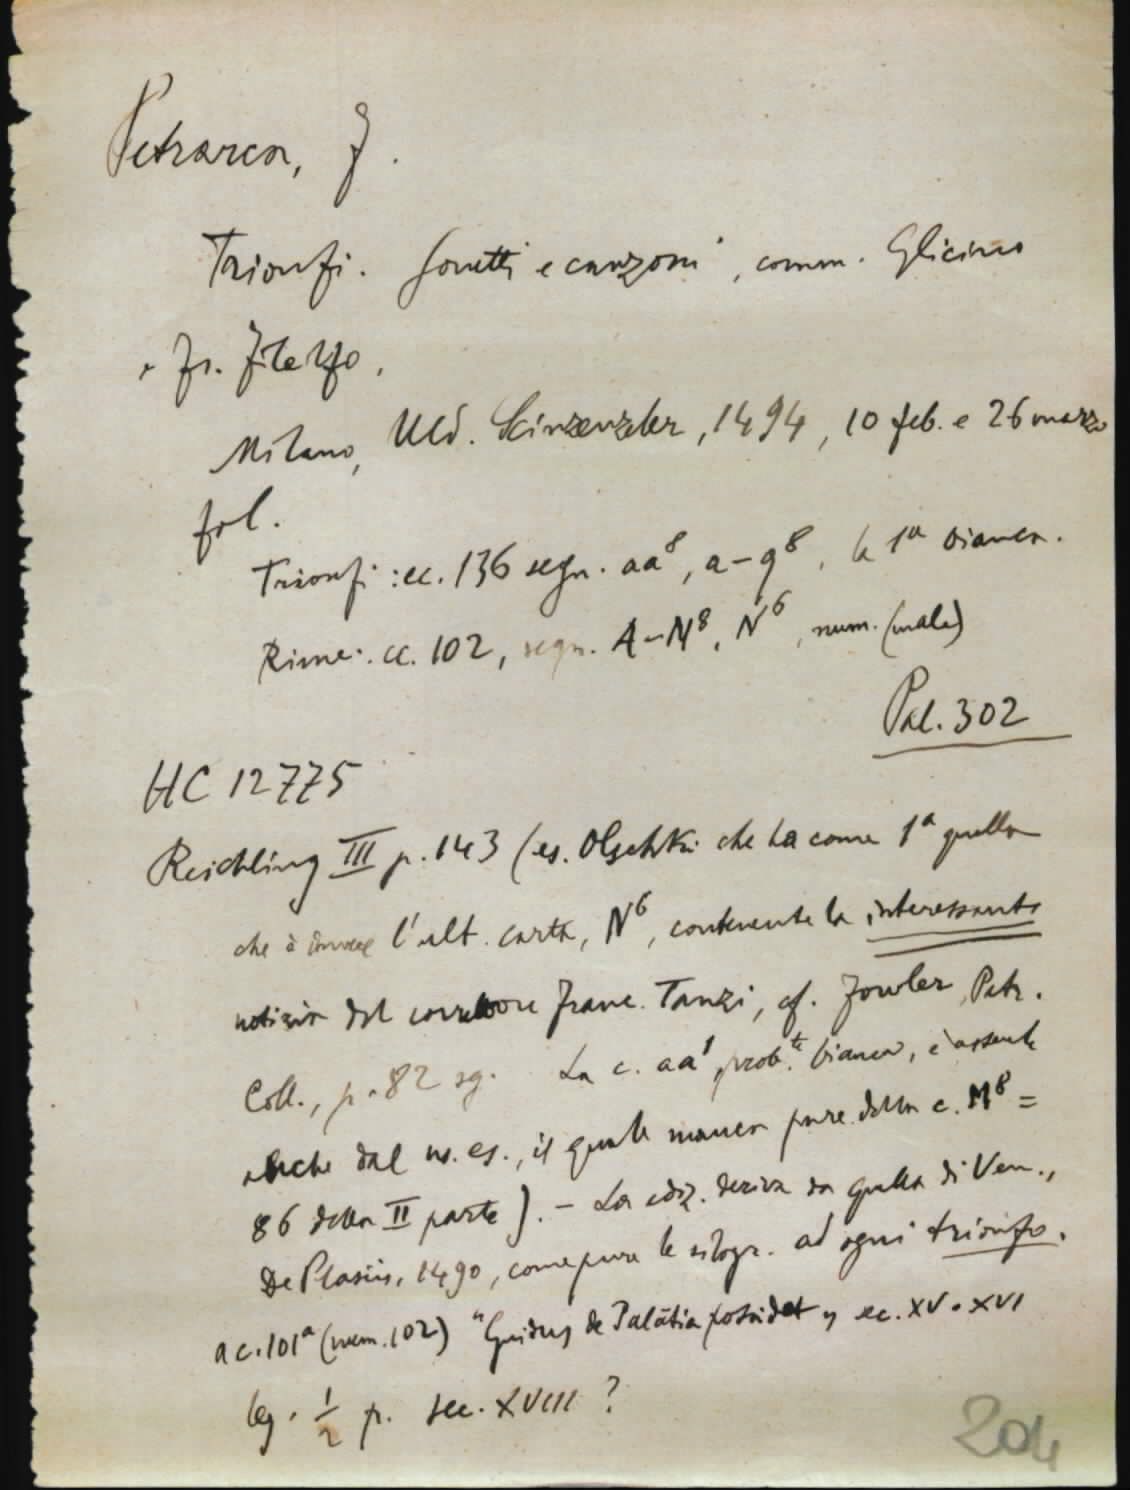 Petrarca, F.
Trionfi. Sonetti e canzoni, comm. Glicino
e Fr. Filelfo.
Milano, Uld. Scinzenzeler, 1494, 10 feb. e 26 marzo
fol.
Trionfi: cc. 136 segn. aa⁸, a-q⁸, la 1ª bianca.
Rime: cc. 102, segn. A-M⁸, N⁶, num. (male)
Pal. 302
HC 12775
Reichling III p. 143 (es. Olschki che ha come 1ª quella
che è invece l'ult. carta, N⁶, contenente la interessante
notizia del correttore Franc. Tanzi, cf. Fowler, Petr.
Coll., p. 82 sg. La c. aa¹, prob.te bianca, è assente
anche dal ns. es., il quale manca pure della c. M⁸ =
86 della II parte). - La ediz. deriva da quella di Ven.,
De Plasiis, 1490, come pure le silogr. ad ogni trionfo.
a c. 101ª (num. 102) "Guidus de Palatia possidet" sec. XV-XVI
leg. 1/2 p. sec. XVIII?
204